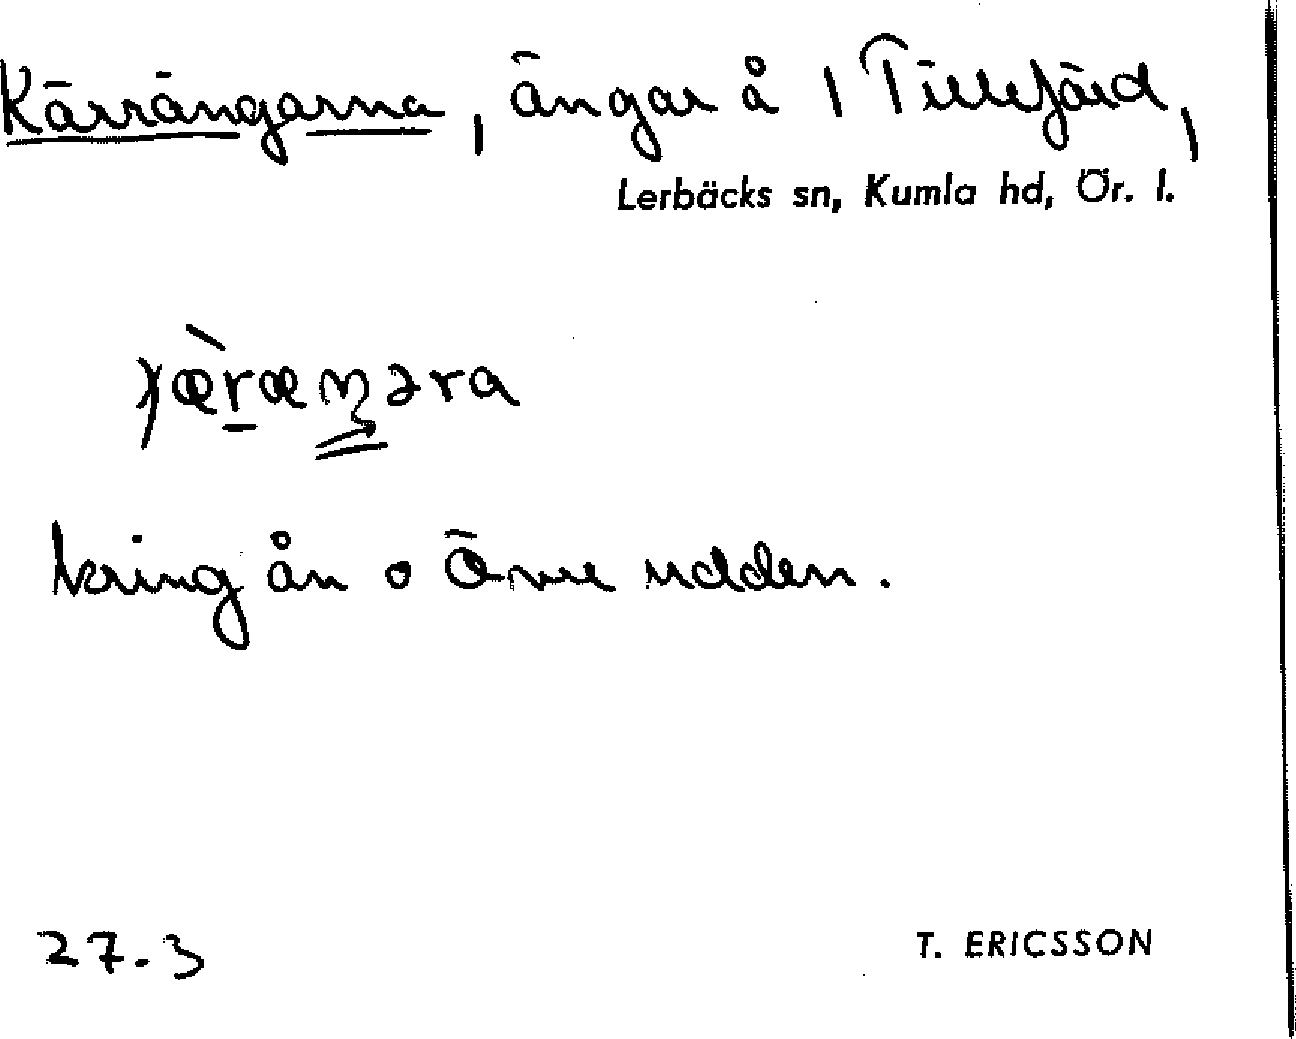 Kärrängarna, ängar å 1 Tillefärd,
Lerbäcks sn, Kumla hd, Ör. l.
kring ån o Övre udden.
27.3
T. ERICSSON